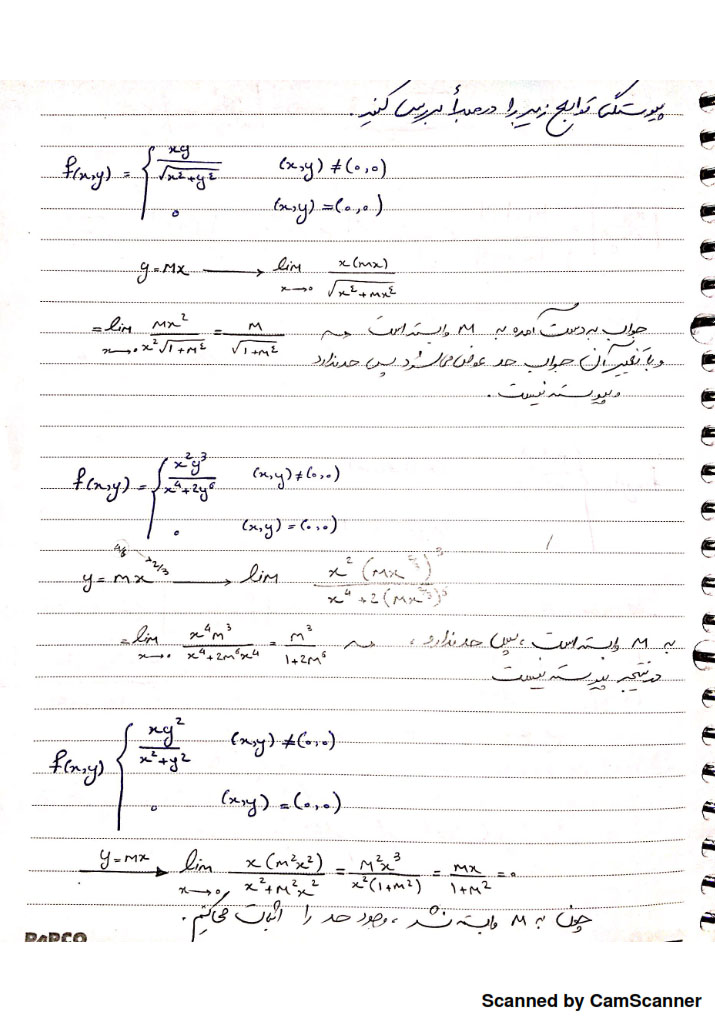 پیوستگی توابع زیر را در مبدأ بررسی کنید.
f(x,y) = { xy / √(x²+y²)   (x,y) ≠ (۰,۰)
۰   (x,y) = (۰,۰)
y = Mx → lim x→۰ x(Mx) / √(x²+Mx²)
= lim x→۰ Mx² / x²√(1+M²) = M / √(1+M²) جواب به دست آمده به M وابسته است
و با تغییر آن جواب حد عوض می‌شود پس حد ندارد
و پیوسته نیست.
f(x,y) = { x²y³ / x⁴+2y⁶   (x,y) ≠ (۰,۰)
۰   (x,y) = (۰,۰)
4/6 → 2/3
y = Mx → lim x²(Mx^2/3)³ / x⁴+2(Mx^2/3)⁶
= lim x→۰ x⁴M³ / x⁴+2M⁶x⁴ = M³ / 1+2M⁶ به M وابسته است، پس حد ندارد،
در نتیجه پیوسته نیست
f(x,y) { xy² / x²+y²   (x,y) ≠ (۰,۰)
۰   (x,y) = (۰,۰)
y=Mx → lim x→۰ x(M²x²) / x²+M²x² = M²x³ / x²(1+M²) = Mx / 1+M² = ۰
چون به M وابسته نشد، وجود حد را اثبات می‌کنیم.
PAPCO
Scanned by CamScanner